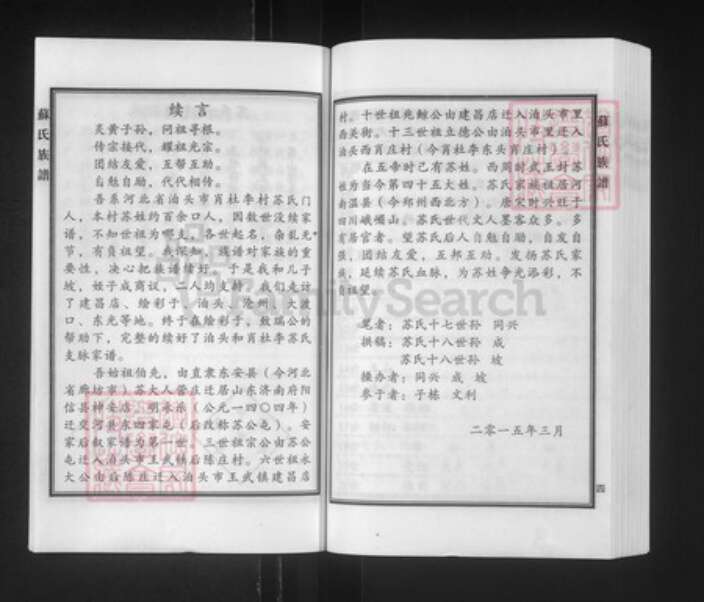 蘇氏族譜
续言
炎黄子孙，问祖寻根。
传宗接代，耀祖光宗。
团结友爱，互帮互助。
自勉自励，代代相传。
吾系河北省泊头市肖杜李村苏氏门
人，本村苏姓约百余口人，因数世没续家
谱，不知世祖为哪支，各世起名，杂乱无
节，有负祖望。我深知，族谱对家族的重
要性，决心把族谱续好。于是我和儿子
坡，侄子成商议，二人均支持，我们走访
了建昌店、绘彩子、泊头、沧州、大渡
口、东光等地。终于在绘彩子，致瑞公的
帮助下，完整的续好了泊头和肖杜李苏氏
支脉家谱。
吾始祖伯先，由直隶东安县（今河北
省廊坊市）苏大人营庄迁居山东济南府阳
信县神安店，明永乐（公元一四〇四年）
迁交河县东四家屯（后改称苏公屯）。安
家后叙家谱为第一世。三世祖宗公由苏公
屯迁入泊头市王武镇后陈庄村。六世祖永
大公由后陈庄迁入泊头市王武镇建昌店
村。十世祖兆鲸公由建昌店迁入泊头市里
西美街。十三世祖立德公由泊头市里迁入
泊头西肖庄村（今肖杜李东头肖庄村）。
在五帝时已有苏姓。西周时武王封苏
姓为当今第四十五大姓。苏氏家族祖居河
南温县（今郑州西北方）。唐宋时兴旺于
四川峨嵋山。苏氏世代文人墨客众多。多
有居官者。望苏氏后人自勉自励，自发自
强，团结友爱，互邦互助。发扬苏氏家
族，延续苏氏血脉，为苏姓争光添彩，不
负祖望。
笔者：苏氏十七世孙 同兴
撰稿：苏氏十八世孙 成
苏氏十八世孙 坡
操办者：同兴 成 坡
参于者：子栋 文利
二零一五年三月
蘇氏族譜
四
FamilySearch